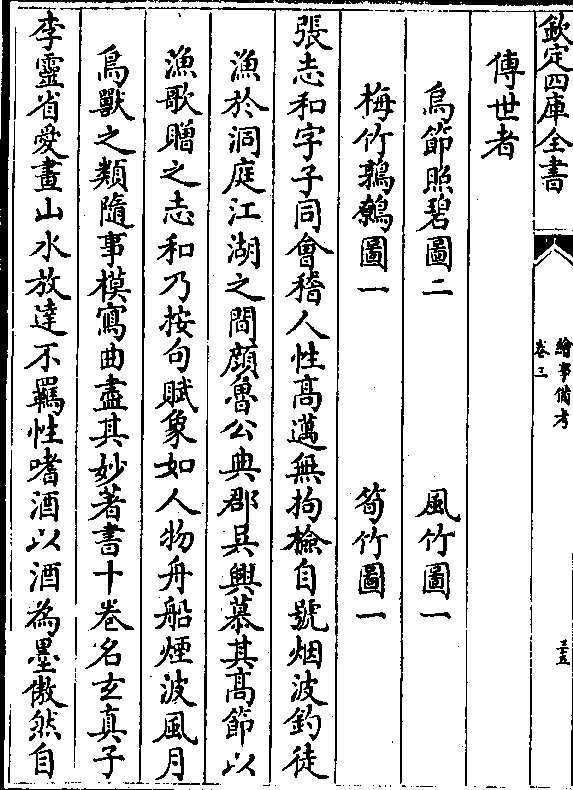 欽定四庫全書
繪事備考
卷三
三五
傳世者
烏節照碧圖二　風竹圖一
梅竹鶺鴒圖一　筍竹圖一
張志和字子同會稽人性髙邁無拘檢自號烟波釣徒
漁於洞庭江湖之間顔魯公典郡吳興慕其髙節以
漁歌贈之志和乃按句賦象如人物舟船煙波風月
鳥獸之類隨事模寫曲盡其妙著書十卷名玄真子
李靈省愛畫山水放達不羈性嗜酒以酒為墨傲然自